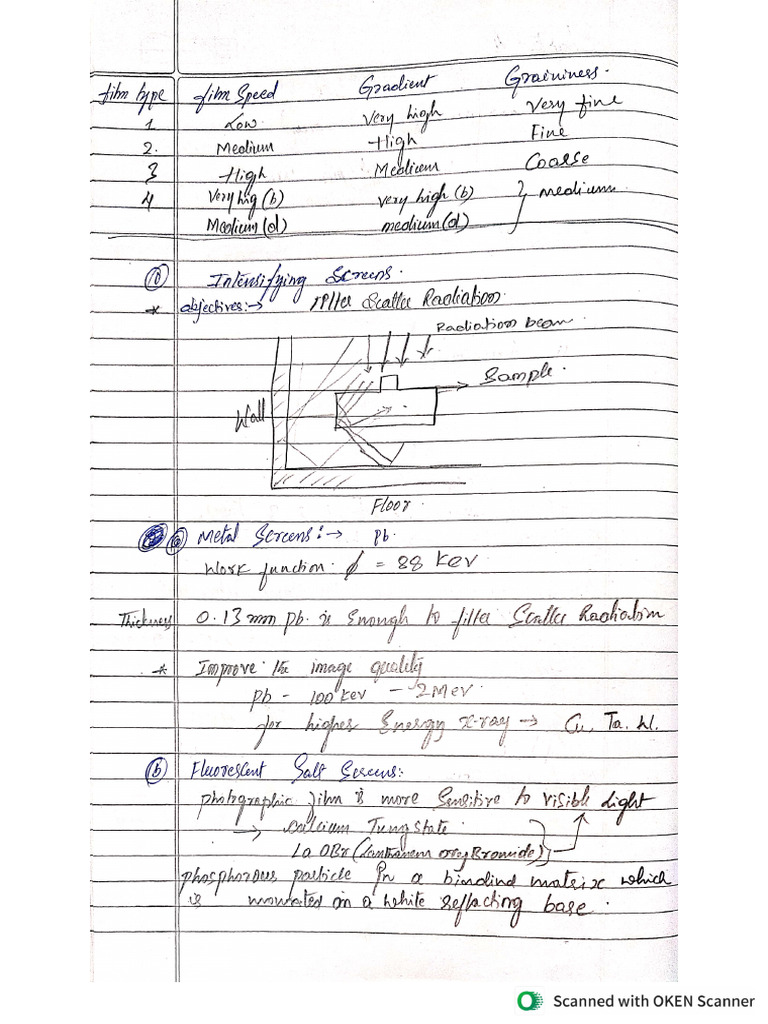 film type film Speed Gradient Graininess.
1 Low. Very high Very fine
2. Medium High Fine
3 High Medium Coarse
4 Very hig (b) very high (b) } medium
Medium (d) medium (d)
(10) Intensifying Screens.
* objectives:→ filter Scatter Radiation
Radiation beam
Sample.
Wall
Floor.
(a) Metal Screens:→ Pb.
Work function. ϕ = 88 kev
Thickness 0.13 mm pb. is Enough to filter Scatter Radiation
* Improve the image quality
Pb - 100 kev - 2 Mev.
for higher Energy x-ray → Cu, Ta. W.
(b) Fluorescent Salt Screens:
photographic film is more Sensitive to visible Light
→ Calcium Tungstate.
La OBr (Lantranem oxy Bromide)
phosphorous particle in a bindind matrix which
is mounated on a white reflacting base.
Scanned with OKEN Scanner